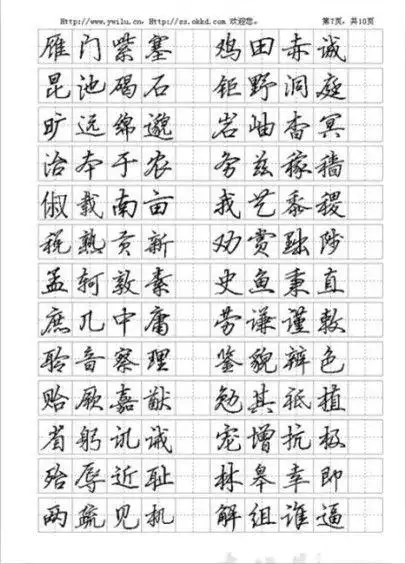 Http://www.ywilu.cn，Http://zs.okkd.com 欢迎您。 第7页，共10页
雁门紫塞 鸡田赤诚
昆池碣石 钜野洞庭
旷远绵邈 岩岫杳冥
治本于农 务兹稼穑
俶载南亩 我艺黍稷
税熟贡新 劝赏黜陟
孟轲敦素 史鱼秉直
庶几中庸 劳谦谨敕
聆音察理 鉴貌辨色
贻厥嘉猷 勉其祗植
省躬讥诫 宠增抗极
殆辱近耻 林皋幸即
两疏见机 解组谁逼